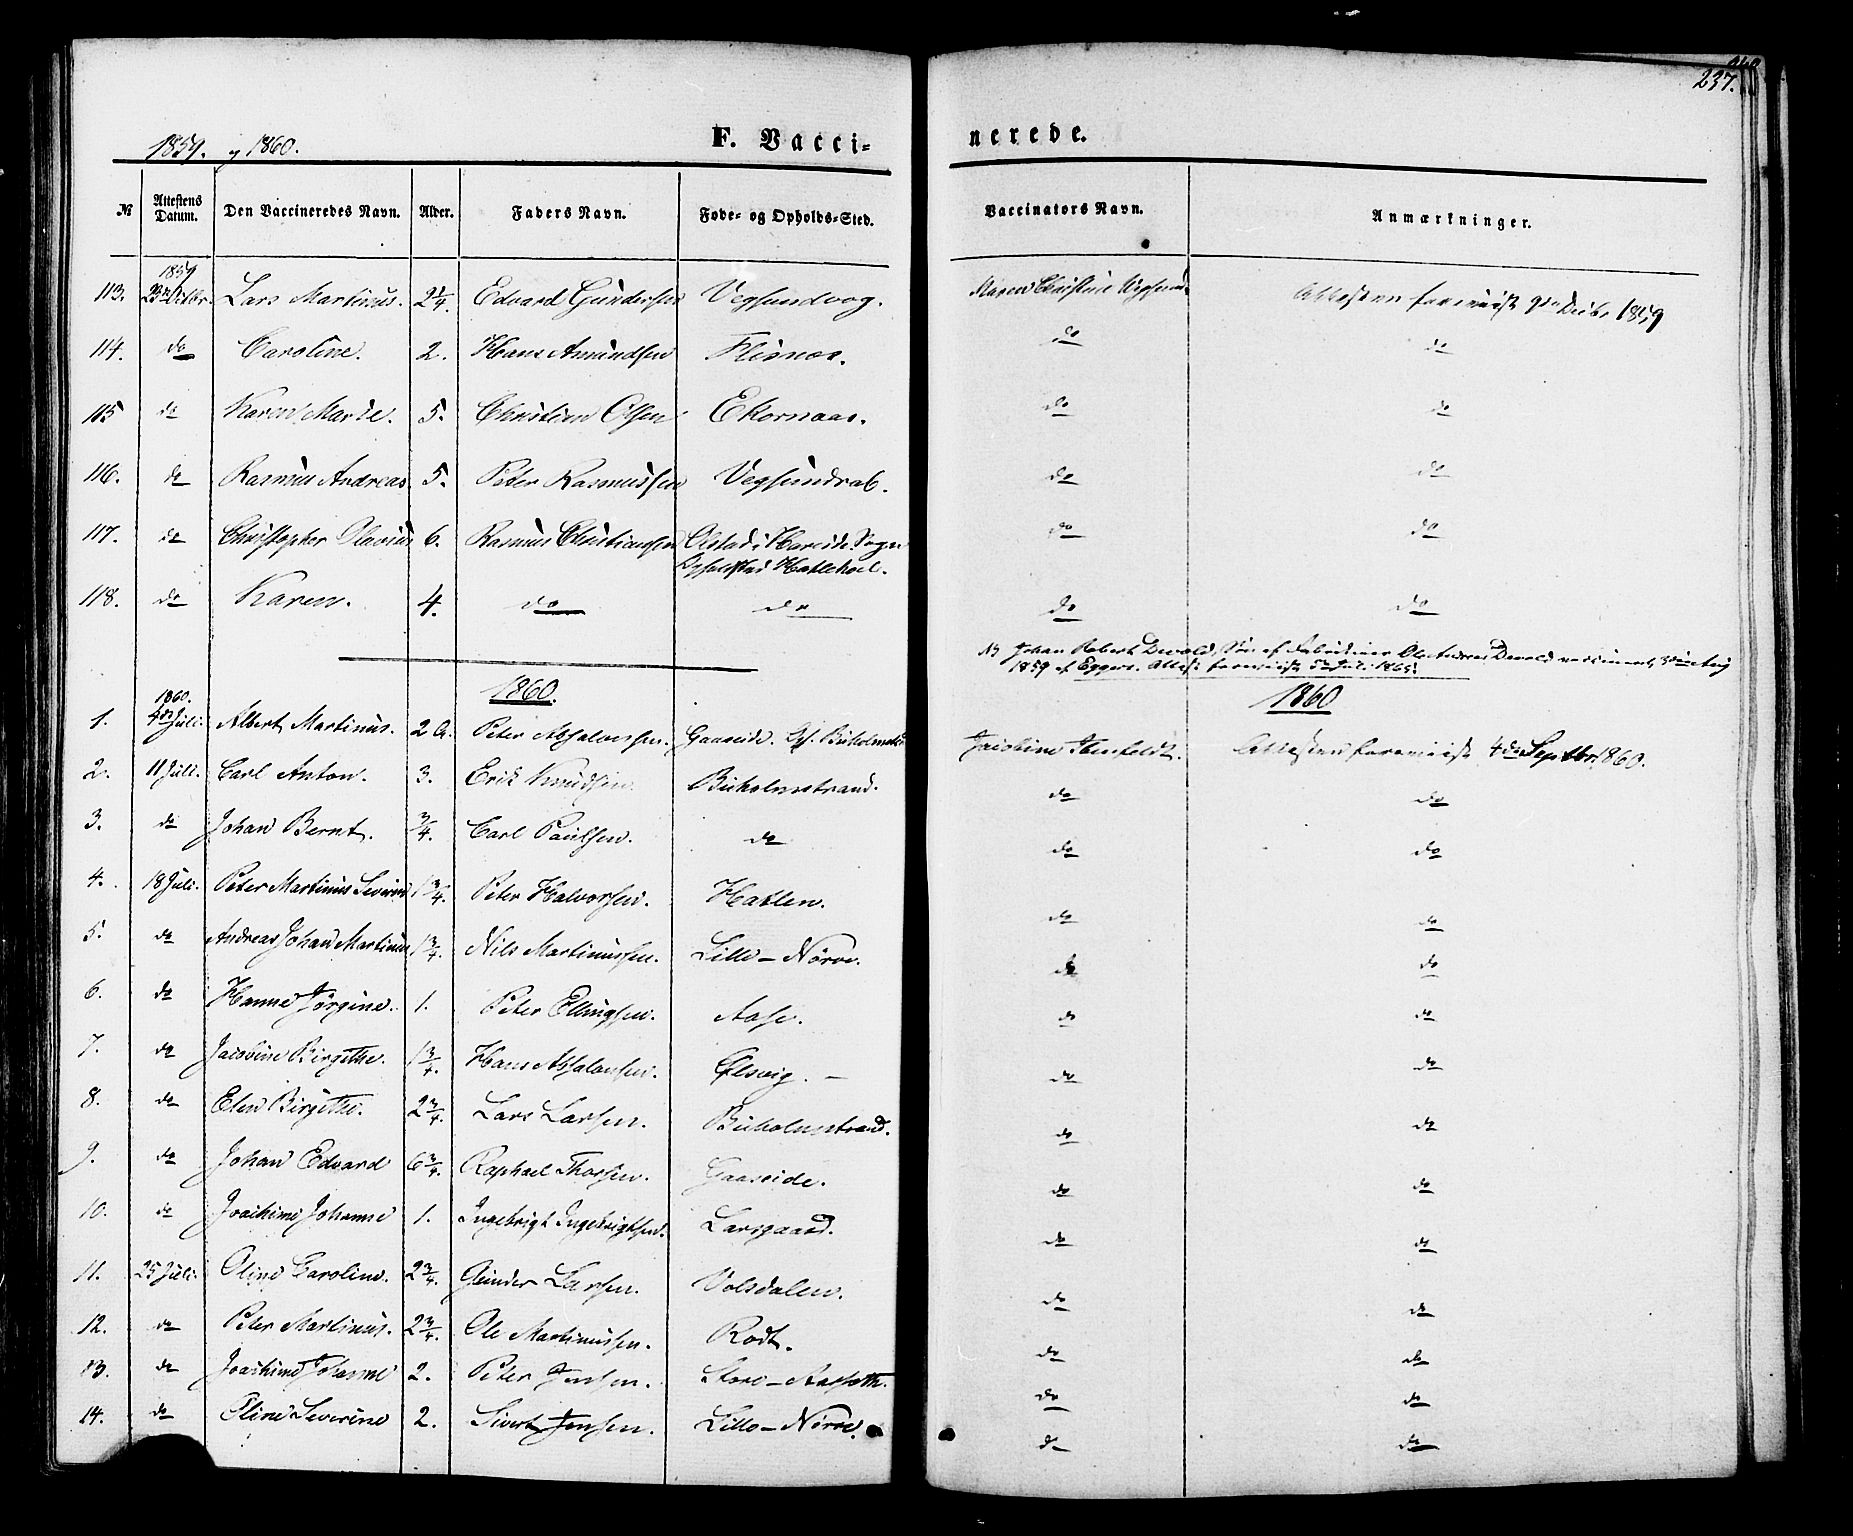 237.
1859. og 1860.
F. Vacci-
nerede.
№ Attestens Datum. Den Vaccineredes Navn. Alder. Faders Navn. Føde- og Opholds-Sted. Vaccinators Navn. Anmærkninger.
1859
113. 23de Octbr. Lars Martinus. 2 1/4. Edvard Gundersen Vegsundvog. Maren Christine Vegsund. Attesten fremviist 9de Decbr 1859
114. do Caroline. 2. Hans Amundsen Flisnes. do do
115 do Karen Marie. 5. Christian Olsen Ekornaas. do do
116. do Rasmus Andreas 5. Peter Rasmussen Vegsundrab. do do
117. do Christopher Olavius 6. Rasmus Christiansen Alstad i Hareide Sogn do do
Opholdsted Hatlehoel.
118. do Karen. 4. do do do do
NB Johan Robert Devold, Søn af Fabrikeier Ole Andreas Devold vaccineret
1859 af Eggers. Attest fremviist 5te Juli 1865.
1860. 1860
1860.
1. 4de Juli. Albert Martinus. 2 A. Peter Absalonsen. Gaaseide. Op. Buholmstr Jacobine Stenfeldt. Attesten fremviist 4de Septbr 1860.
2. 11 Juli. Carl Anton. 3. Erik Knudsen Buholmstrand. do do
3. do Johan Bernt. 3/4. Carl Paulsen. do do do
4. 18 Juli. Peter Martinus Severin 1 3/4. Peter Halvorsen. Hatlen. do do
5. do Andreas Johan Martinus 1 3/4. Nils Martinussen. Lille-Nørve. do do
6. do Hanne Jørgine. 1. Peter Ellingsen. Aase. do do
7. do Jacobine Birgithe. 1 3/4. Hans Absalonsen. Elsvig. - do do
8. do Elen Birgithe. 2 3/4. Lars Larsen. Buholmstrand. do do
9. do Johan Edvard 6 3/4. Raphael Thorsen. Gaaseide. do do
10. do Joachime Johanne 1. Ingebrigt Ingebrigtsen. Larsgaard. do do
11. 25 Juli. Oline Caroline. 2 3/4. Gunder Larsen. Volsdalen. do do
12. do Peter Martinus. 2 3/4. Ole Martinussen. Rødt. do do
13. do Joachime Johanne 2. Peter Jensen. Store-Aasseth. do do
14. do Eline Severine 2. Sivert Jensen. Lille-Nørve. do do